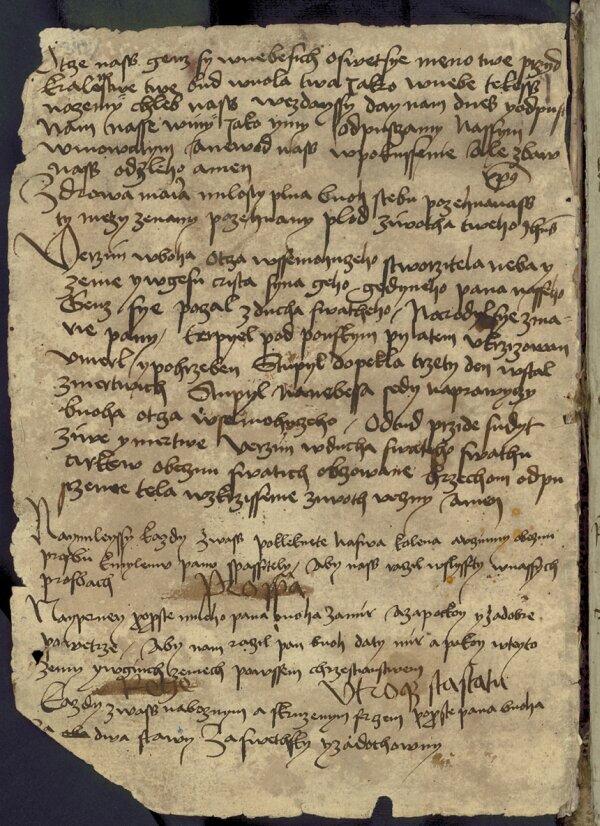 Otze nass genz sy wnebesich oswetsye meno twe przyd
kralestwe twe bud wuola twa Jako wnebe tekess
nazemy chleb nass wezdayssy day nam dnes y odpust
nam nasse winy Jako y my odpussczamy nassym
winowatym Anewod nass wpokussenie Ale zbaw
nass odzleho amen
Zdrowa maria milosty plna buoh stebu pozehnanass
ty mezy zenamy pozehnany plod ziwotha tweho Jhus
Werzim wboha Otza wssemohuzeho stworzitela neba y
zeme y wgesu crista syna geho gedyneho pana nasseho
Genz sye pozal zducha swatheho Narodyl sye zma-
rie pany terpyel pod ponskym pylatem vkrizowan
vmerl y pohrzeben Stupyl dopekla trzety den wstal
zmertwich Stupyl nanebesa sedy naprawyczy
buoha otza wssemohuzeho Odtud przide sudyt
ziwe y mertwe Werzim wducha swateho swathu
cirkew obczim swatich obzowanie hrzechom odpu
sczenie tela wzkrzissenie ziwoth wezny Amen
Naymileyssy kazdy zwass pokleknete nasswa kolena wczinmy obczim
prozbu kmylemu panu spassitely Aby nass razil wslyssety wnassych
prosbach
Nayperwey proste mileho pana buoha zamir Azapokoy y zadobre
powetrze Aby nam razil pan buoh daty mir a pokoy wteyto
zemy y wginich zemech powssem chrzestianstwem
Utroq statu
Kazdy zwass naboznym a skruzenym srzem proste pana buoha
Za oba dwa stawy Zaswethsky y zadochowny